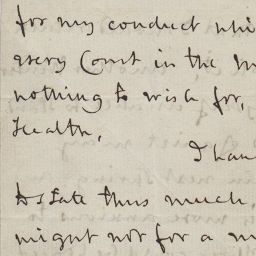 for my conduct whi
every Court in the
nothing to wish for,
Health.
I hav
to State thus much,
might not for a m